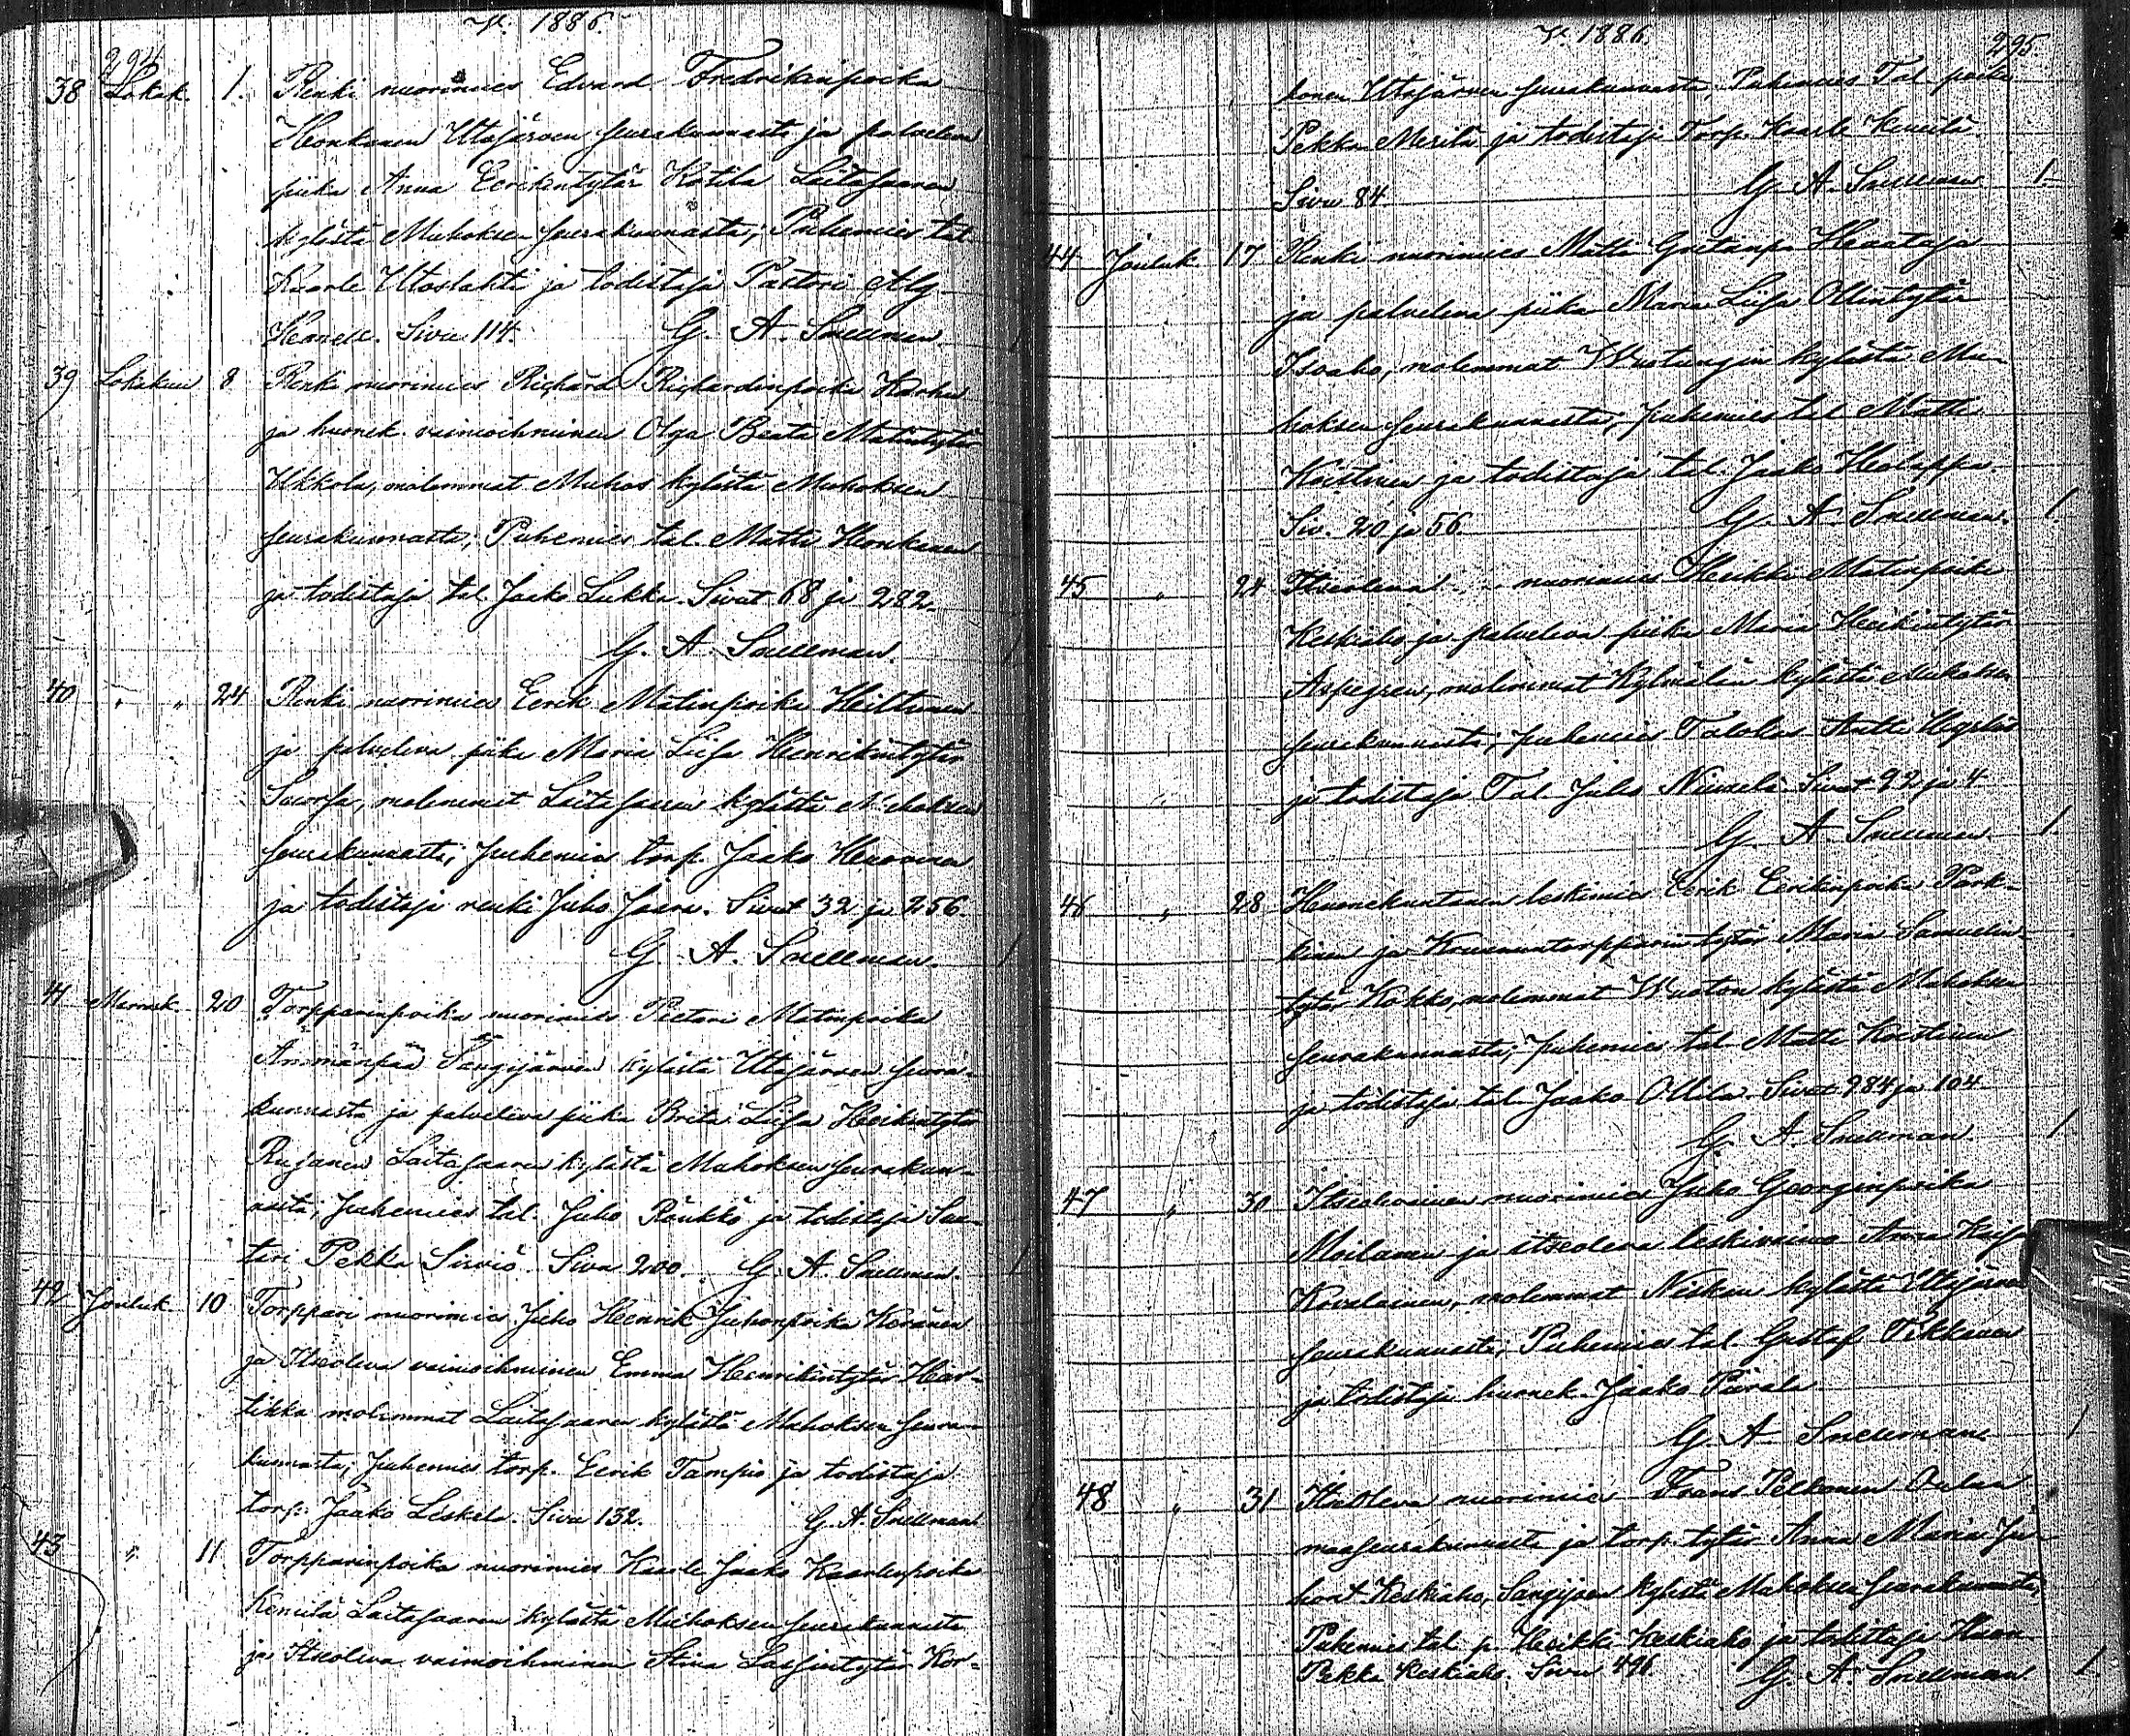 V. 1886.
294
38 Lokak. 1. Renki nuorimies Edvard Fredrikinpoika
Honkanen Utajärven seurakunnasta ja palveleva
piika Anna Eerikintytär Kotila Laitasaaren
kylästä Muhoksen seurakunnasta; Puhemies tal.
Kaarle Utoslahti ja todistaja Pastori
Sivu 114. G. A. Snellman. 1
39 Lokakuu 8 Renki nuorimies Richard Richardinpoika Karhu
ja huonek. vaimoihminen Olga Beata Matintytär
Ukkola, molemmat Muhos kylästä Muhoksen
seurakunnasta; Puhemies tal. Matti Honkanen
ja todistaja tal. Jaako Lukka. Sivat 68 ja 282.
G. A. Snellman. 1
40 " " 24 Renki nuorimies Eerik Matinpoika Heiltunen
ja palveleva piika Maria Liisa Henrikintytär
Suorsa, molemmat Laitasaaren kylästä Muhoksen
seurakunnasta; puhemies torp. Jaako
ja todistaja renki Juho Jaara. Sivut 32 ja 256.
G. A. Snellman. 1
41 Marrask. 20 Torpparinpoika nuorimies Pietari Matinpoika
Ämmänpää Sangijärven kylästä Utajärven seura-
kunnasta ja palveleva piika Brita Liisa Heikintytär
Rujanen Laitasaaren kylästä Muhoksen seurakun-
nasta; Puhemies tal. Juho Röukkö ja todistaja Suu-
tari Pekka Sirviö. Sivu 200. G. A. Snellman. 1
42 Jouluk. 10 Torppari nuorimies Juho Henrik Juhonpoika Keränen
ja Itseoleva vaimoihminen Emma Henrikintytär Här-
tikka molemmat Laitasaaren kylästä Muhoksen seura-
kunnasta; Puhemies torp. Eerik Tampio ja todistaja
torp. Jaako Leskelä. Sivu 132. G. A. Snellman. 1
43 " 11 Torpparinpoika nuorimies Kaarle Jaako Kaarlenpoika
Kemilä Laitasaaren kylästä Muhoksen seurakunnasta
ja Itseoleva vaimoihminen Stina Lassintytär Kor-
V. 1886.
295
honen Utajärven seurakunnasta; Puhemies Tal. poika
Pekka Merilä ja todistaja Torp. Kaarle Kemilä.
Sivu 84. G. A. Snellman 1.
44 Jouluk. 17 Renki nuorimies Matti Heataja
ja palveleva piika Maria Liisa Ollintytär
Isoaho, molemmat kylästä Mu-
hoksen seurakunnasta; puhemies tal. Matti
Koistinen ja todistaja tal. Jaako Holappa.
Siv. 20 ja 56. G. A. Snellman. 1.
45 " 24 Itseoleva nuorimies Heikki Matinpoika
Keskiaho ja palveleva piika Maria Heikintytär
Aspegren, molemmat Kylmälän kylästä Muhoksen
seurakunnasta; puhemies Antti
ja todistaja Tal. Juho Niemelä. Sivat 92 ja 4
G. A. Snellman. 1.
46 " 28 Huonekuntanen leskimies Eerik Eerikinpoika Pork-
kinen ja Kruununtorpparintytär Maria Samuelin-
tytär Kokko, molemmat Wuoton kylästä Muhoksen
seurakunnasta; puhemies tal. Matti Koistinen
ja todistaja tal. Jaako Ollila. Sivat 284 ja 104
G. A. Snellman. 1
47 " 30 nuorimies Juho Georginpoika
Moilanen ja itseoleva leskivaimo Anna Kaisa
Kovalainen, molemmat Nisken kylästä Utajärven
seurakunnasta; Puhemies tal. Gustaf Tikkanen
ja todistaja huonek. Jaako Pärälä.
G. A. Snellman. 1
48 " 31 Itseoleva nuorimies Frans Pelkonen Oulun
maaseurakunnasta ja torp. tytär Anna Maria Ju-
hont. Keskiaho, Sangijoen kylästä Muhoksen seurakunnasta;
Puhemies tal. p. Heikki Keskiaho ja todistaja
Pekka Keskiaho. Sivu 496. G. A. Snellman. 1.